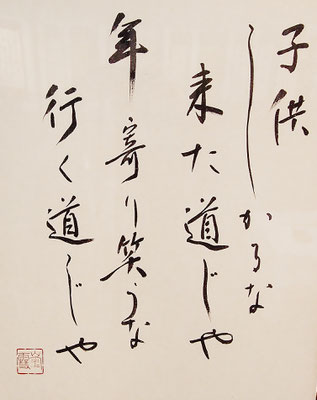 子供
しかるな
来た道じや
年寄り笑うな
行く道じや